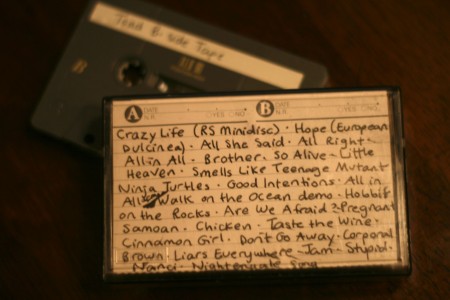 Toad B-side Tape
B
A DATE N.R. YES NO B DATE N.R. YES NO
Crazy Life (RS Minidisc) · Hope (European
Dulcinea) · All She Said · All Right ·
All in All · Brother · So Alive · Little
Heaven · Smells Like Teenage Mutant
Ninja Turtles · Good Intentions · All in
All · Walk on the Ocean demo · Hobbit
on the Rocks · Are We Afraid? · Pregnant
Samoan · Chicken · Taste the Wine ·
Cinnamon Girl · Don't Go Away · Corporal
Brown · Liars Everywhere · Jam · Stupid ·
Nanci · Nightengale Song